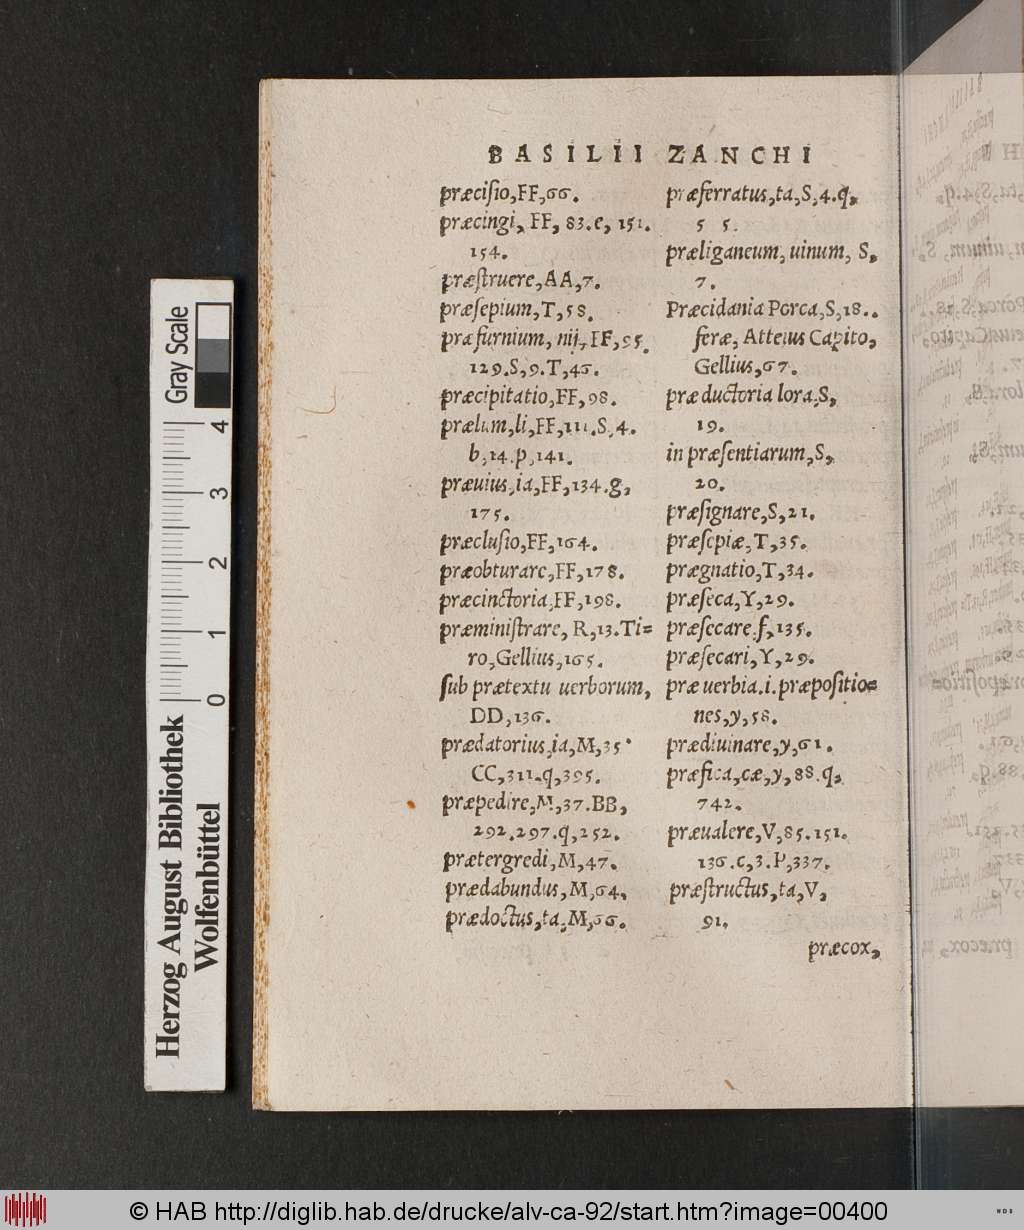 BASILII ZANCHI
præcisio, FF, 66.
præcingi, FF, 83. e, 151.
154.
præstruere, AA, 7.
præsepium, T, 58.
præfurnium, nij, FF, 95.
129. S, 9. T, 46.
præcipitatio, FF, 98.
prælum, li, FF, 111. S, 4.
b, 14. p, 141.
præuius, ia, FF, 134. g,
175.
præclusio, FF, 164.
præobturare, FF, 178.
præcinctoria, FF, 198.
præministrare, R, 13. Ti=
ro, Gellius, 165.
sub prætextu uerborum,
DD, 136.
prædatorius, ia, M, 35.
CC, 311. q, 395.
præpedire, M, 37. BB,
292. 297. q, 252.
prætergredi, M, 47.
prædabundus, M, 64,
prædoctus, ta, M, 66.
præferratus, ta, S, 4. q,
5 5.
præliganeum, uinum, S,
7.
Præcidania Porca, S, 18..
feræ, Atteius Capito,
Gellius, 67.
præductoria lora, S,
19.
in præsentiarum, S,
20.
præsignare, S, 21.
præsepiæ, T, 35.
prægnatio, T, 34.
præseca, Y, 29.
præsecare, f, 135.
præsecari, Y, 29.
præuerbia. i. præpositio=
nes, y, 58.
prædiuinare, y, 61.
præfica, cæ, y, 88. q,
742.
præualere, V, 85. 151.
136. c, 3. P, 337.
præstructus, ta, V,
91.
præcox,
Gray Scale
0 1 2 3 4
Herzog August Bibliothek
Wolfenbüttel
© HAB http://diglib.hab.de/drucke/alv-ca-92/start.htm?image=00400
WDB